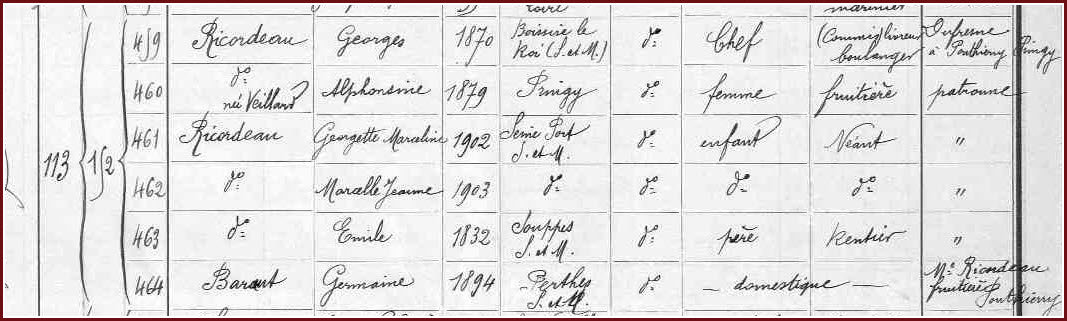 loire marinier
459 Ricordeau Georges 1870 Boissise le Roi (S. et M.) d° Chef (Commis) livreur boulanger Dufresne à Ponthierry Pringy
460 d° née Veillard Alphonsine 1879 Pringy d° femme fruitière patronne
461 Ricordeau Georgette Marceline 1902 Seine Port S. et M. d° enfant Néant "
113 152
462 d° Marcelle Jeanne 1903 d° d° d° d° "
463 d° Emile 1832 Souppes S. et M. d° père Rentier "
464 Baraut Germaine 1894 Perthes S. et M. d° — domestique — Me Ricordeau fruitière Ponthierry